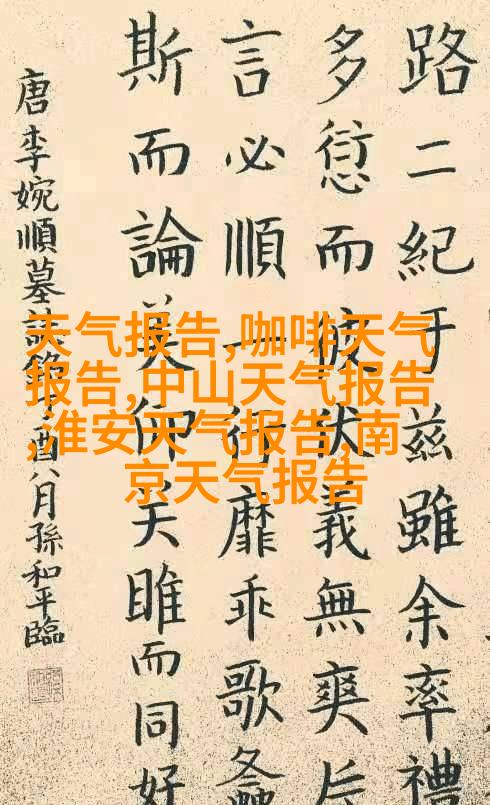 路二紀于兹雖余率禮
多愆而彼伏義無爽片
言必順一行靡乖歌螽
斯而論美仰关雎而同好
唐李婉順墓誌銘 酉八月孫和平臨
天气报告,咖啡天气
报告,中山天气报告
,淮安天气报告,南
京天气报告